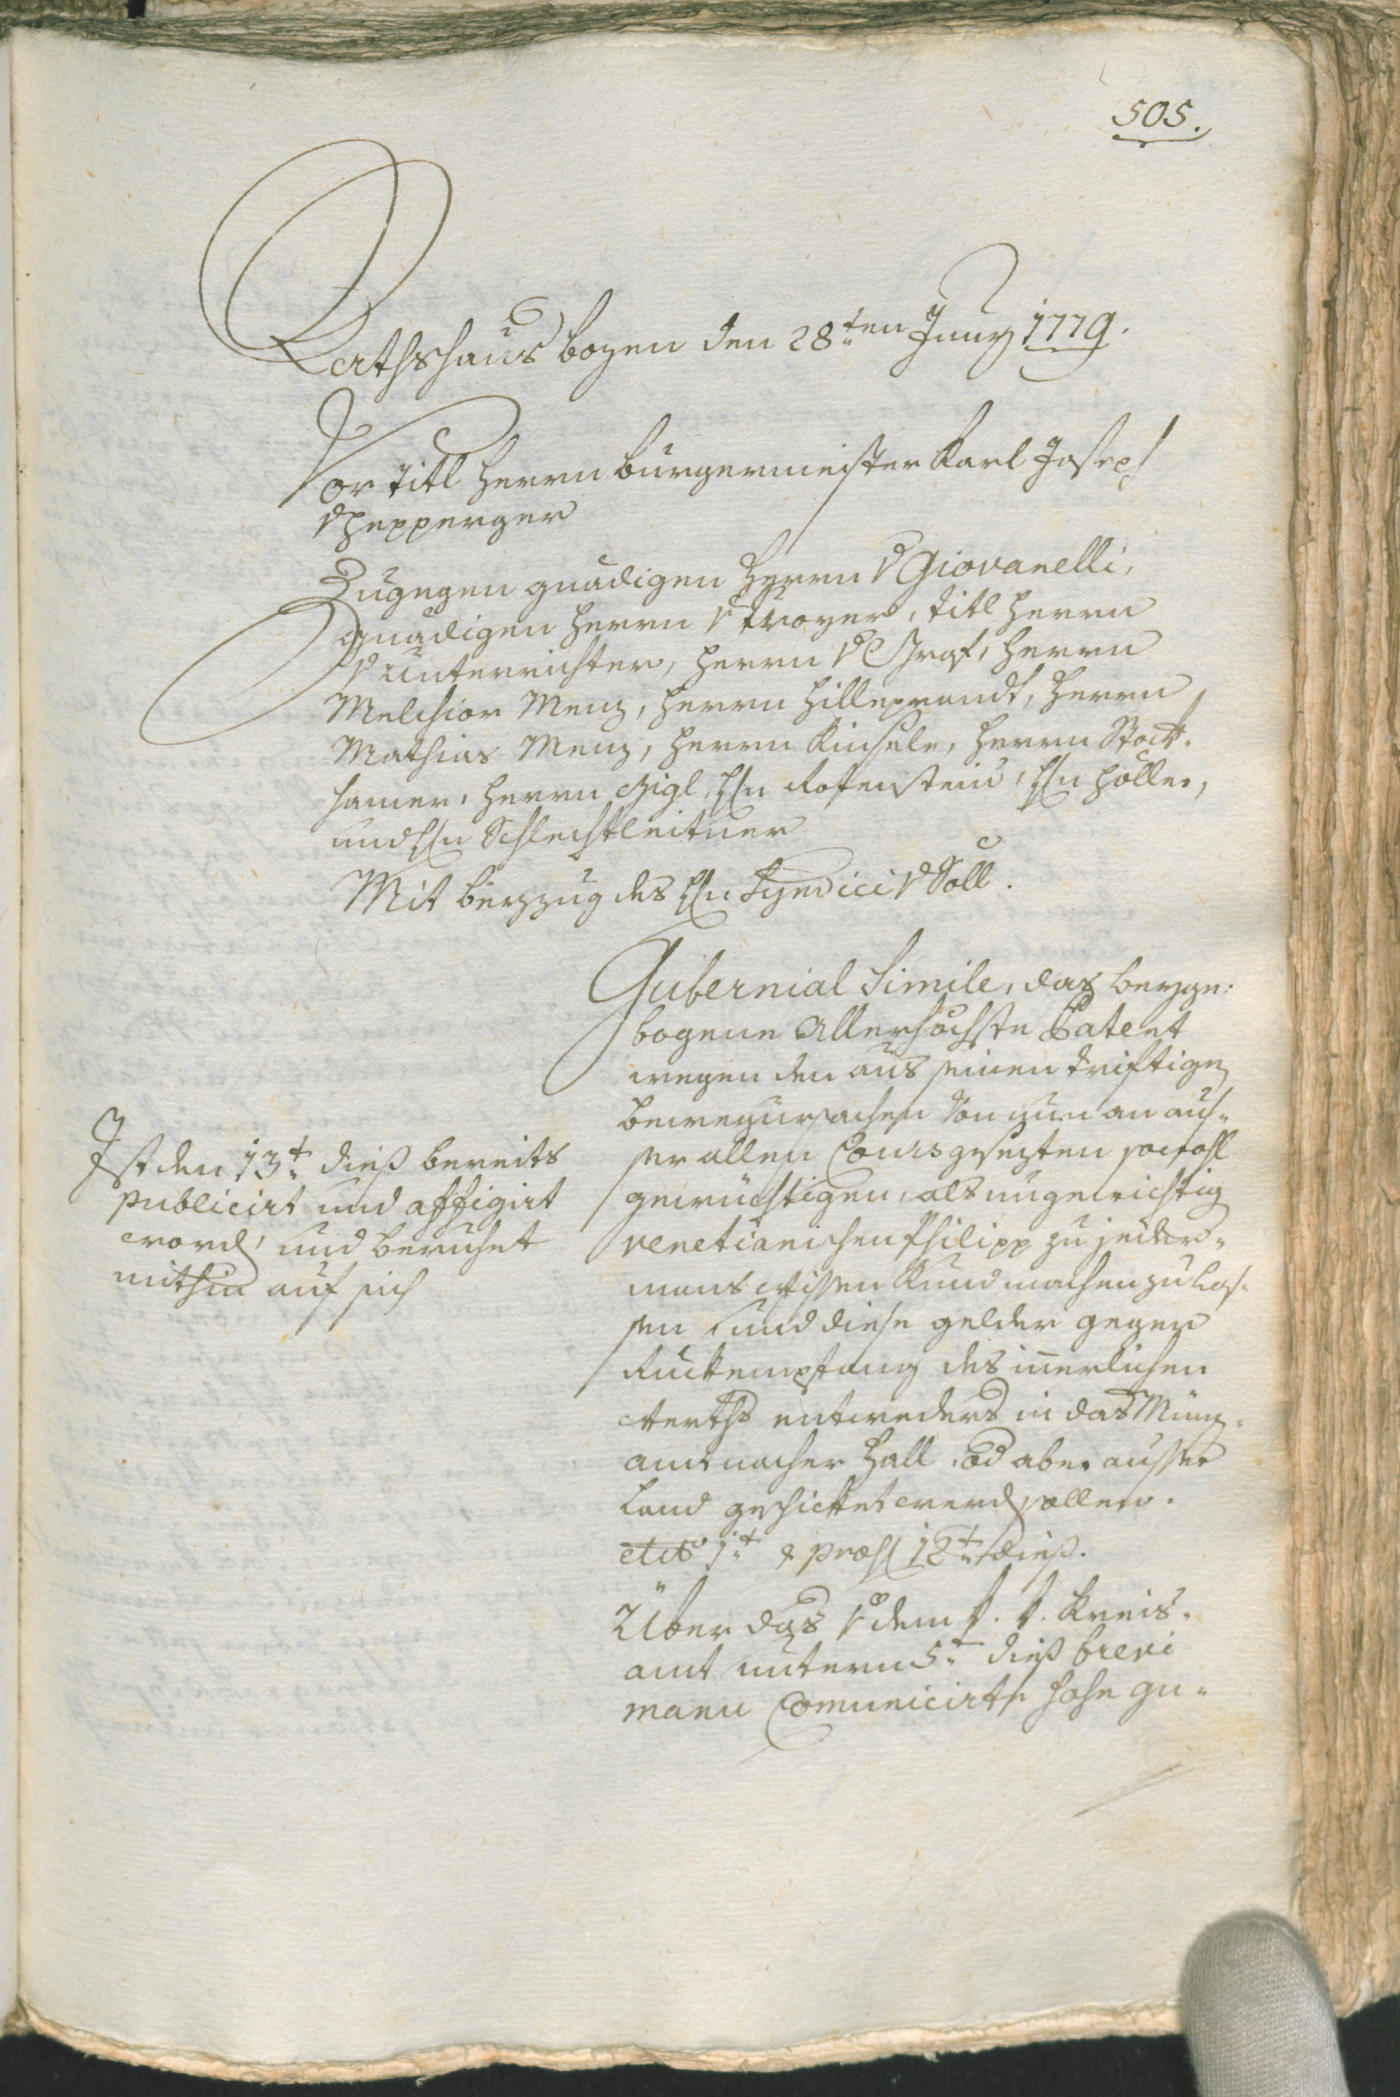 505.
Rathshaus bozen den 28ten Juny 1779.
Vor titl herrn burgermeister Karl Joseph
v Hepperger
Zugegen gnädigen herrn v Giovanelli,
gnädigen herrn v Troyer, titl herrn
v Unterrichter, herrn v Graf, herrn
Melchior Menz, herrn Hilleprandt, herrn
Mathias Menz, herrn Kinsele, herrn Stock-
hamer, herrn Zigl, hn Rosenstein, hn Höller,
und hn Schlechtleitner
Mit beyzug des hn Syndici v Söll.
Gubernial Simile, daß beyge-
bogene Allerhöchste Patent
wegen den aus seinen triftigen
bewegursachen von nun an aus-
ser allen Cours gesezten sowohl
gewüchtigen, als ungewichtig
venetianischen Philipp zu jeder-
mans Wissen Kund machen zu las-
sen und diese gelder gegen
Rückempfang des inerlichen
Werths entweders in das Münz-
amt nacher Hall, od aber ausser
Land geschicket werd sollen.
dto 1t & præs 12t dieß.
Ist den 13t dieß bereits
publicirt und affigirt
word, und beruhet
mithin auf sich
Über das v dem k. k. Kreis-
amt untern 5t dieß brevi
manu Comunicirte hohe Gu-